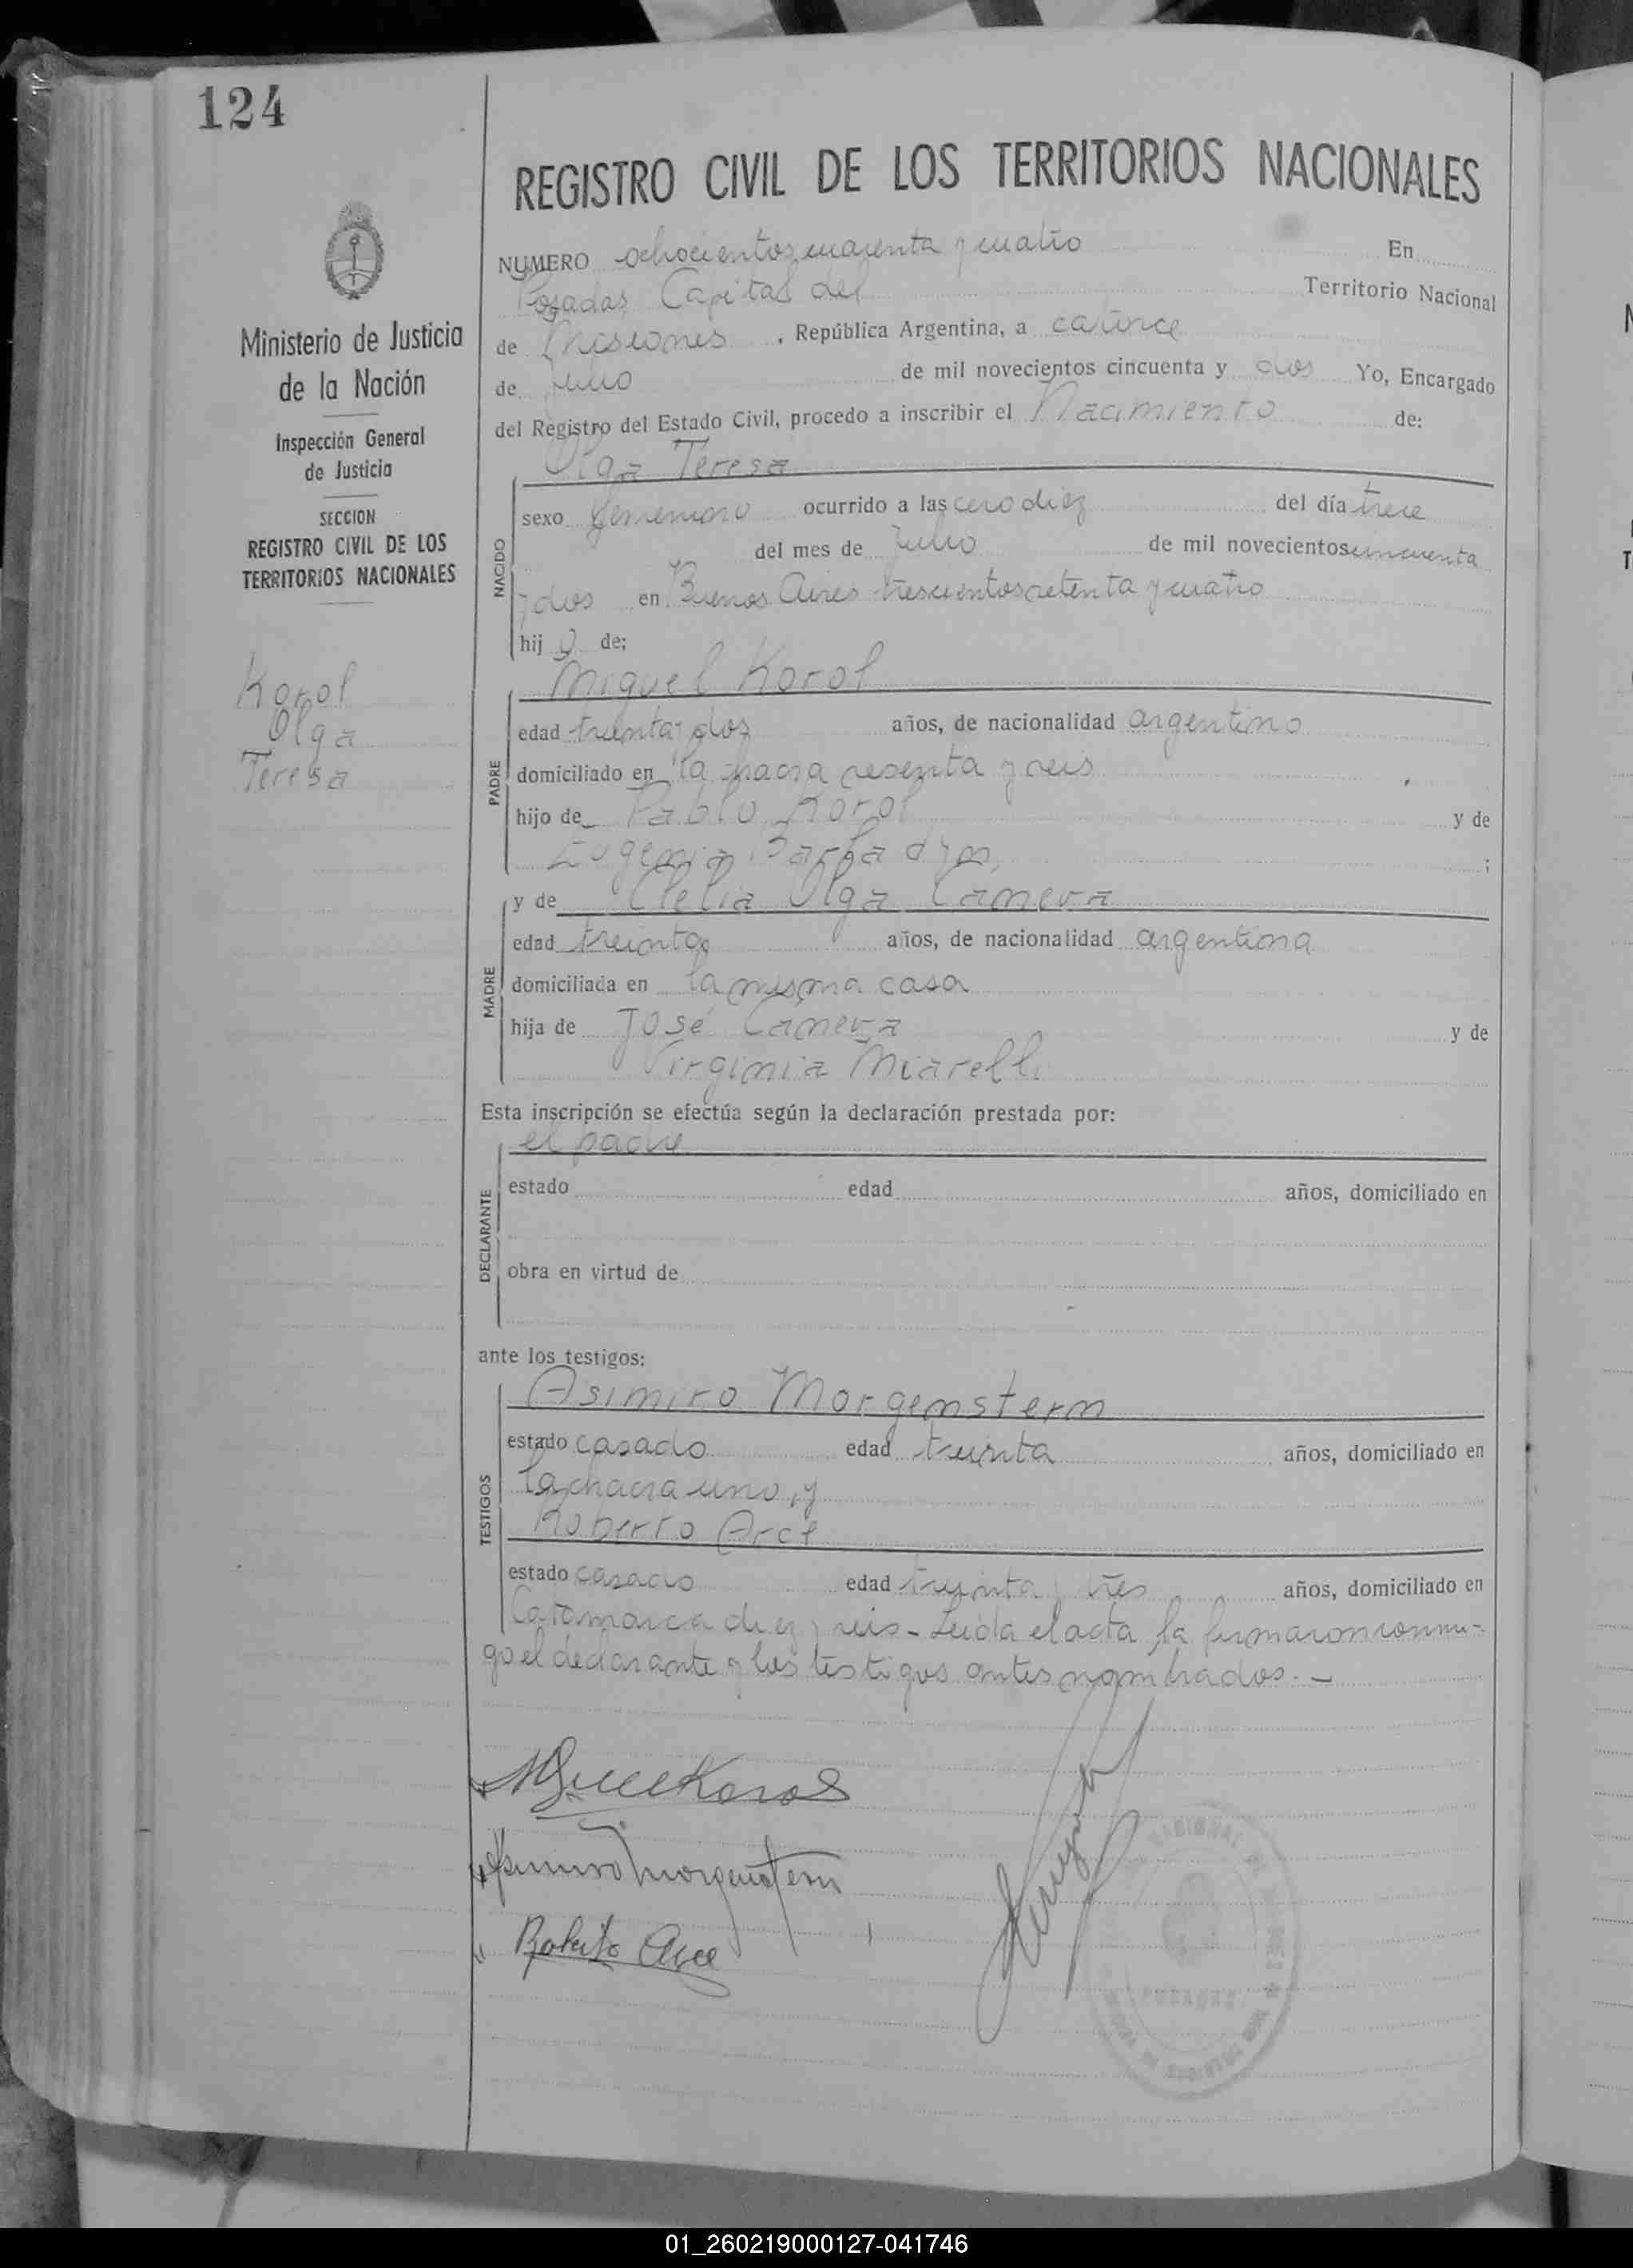 124
REGISTRO CIVIL DE LOS TERRITORIOS NACIONALES
NUMERO ochocientos cuarenta y cuatro En
Posadas, Capital del Territorio Nacional
de Misiones, República Argentina, a catorce
de Julio de mil novecientos cincuenta y dos Yo, Encargado
del Registro del Estado Civil, procedo a inscribir el Nacimiento de:
Olga Teresa
Ministerio de Justicia
de la Nación
Inspección General
de Justicia
SECCION
REGISTRO CIVIL DE LOS
TERRITORIOS NACIONALES
Korol
Olga
Teresa
NACIDO
sexo femenino ocurrido a las cero diez del día trece
del mes de Julio de mil novecientos cincuenta
y dos en Buenos Aires trescientos setenta y cuatro
hija de;
Miguel Korol
PADRE
edad treinta y dos años, de nacionalidad argentino
domiciliado en la chacra sesenta y seis
hijo de Pablo Korol y de
Eugenia ;
y de Clelia Olga Caneva
MADRE
edad treinta años, de nacionalidad argentina
domiciliada en la misma casa
hija de José Caneva y de
Virginia Miarelli
Esta inscripción se efectúa según la declaración prestada por:
el padre
DECLARANTE
estado edad años, domiciliado en
obra en virtud de
ante los testigos:
Asimiro Morgenstern
TESTIGOS
estado casado edad treinta años, domiciliado en
la chacra uno, y
Roberto Arce
estado casado edad treinta y tres años, domiciliado en
Catamarca diez y seis - Leída el acta, la firmaron conmi-
go el declarante y los testigos antes nombrados. -
Korol
Asimiro Morgenstern
Roberto Arce
POSADAS
01_260219000127-041746